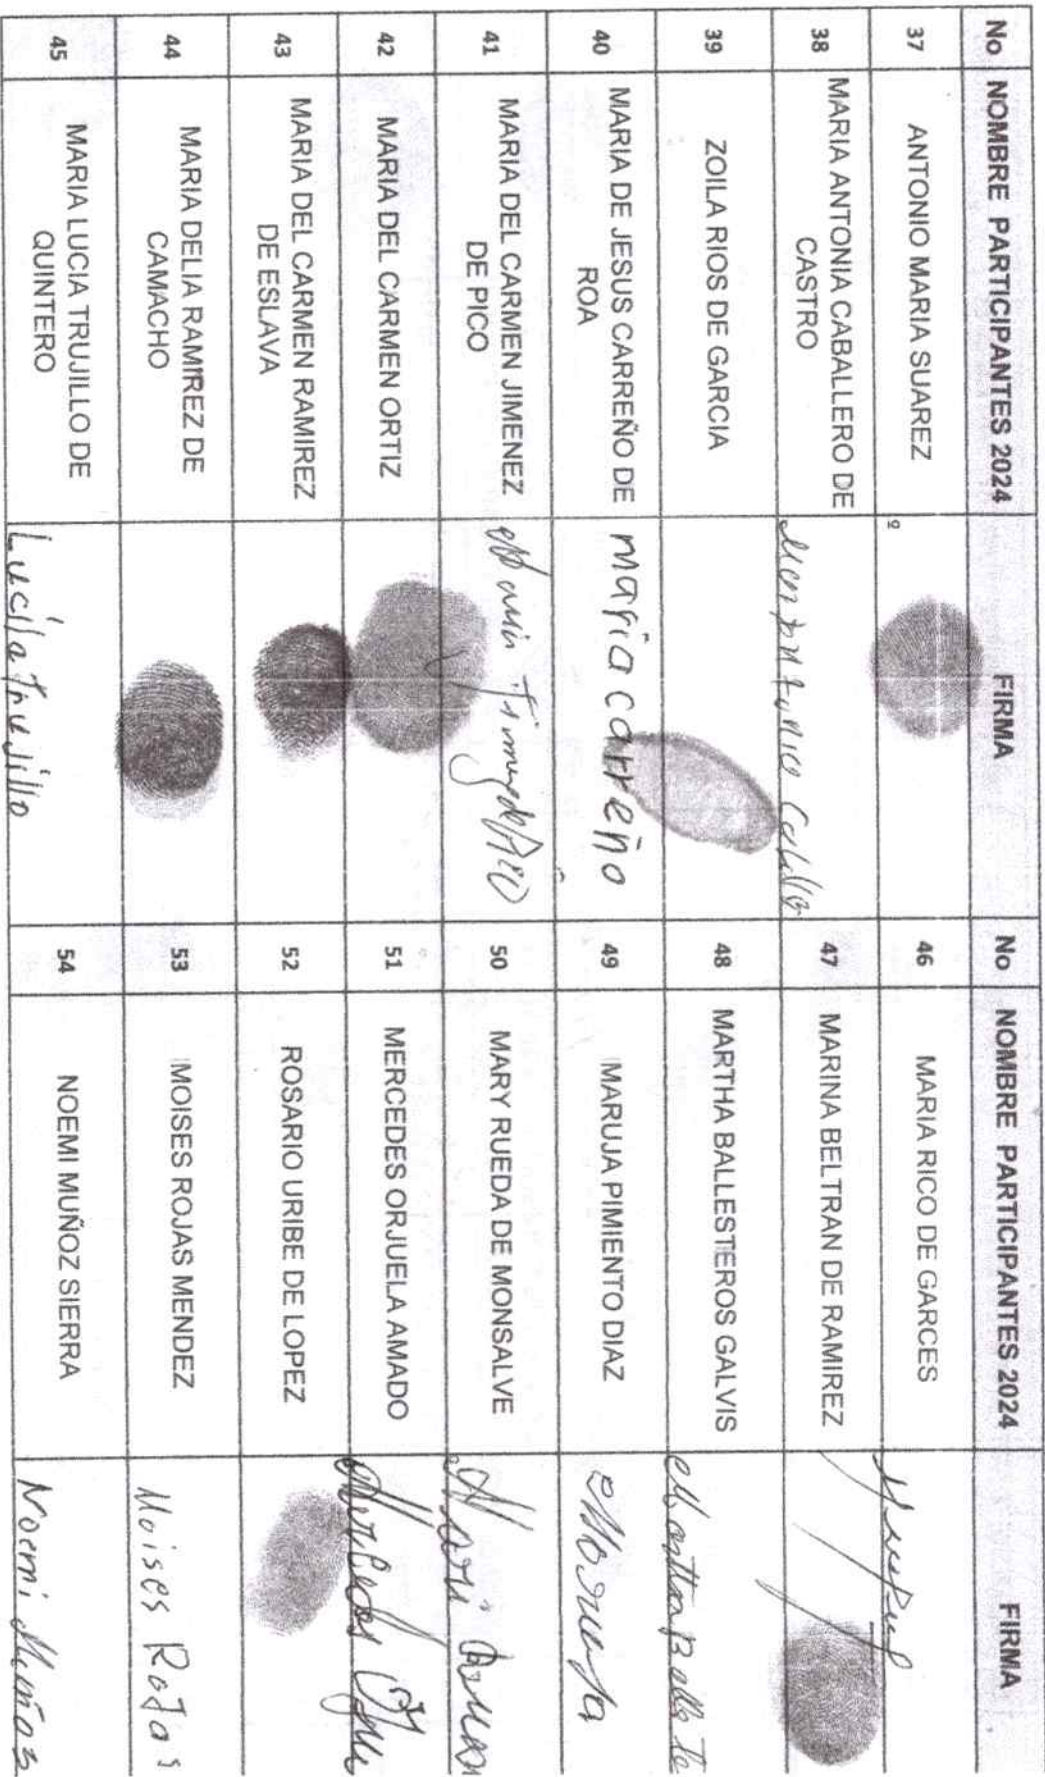 No NOMBRE PARTICIPANTES 2024 FIRMA No NOMBRE PARTICIPANTES 2024 FIRMA
37 ANTONIO MARIA SUAREZ 46 MARIA RICO DE GARCES
38 MARIA ANTONIA CABALLERO DE
CASTRO 47 MARINA BELTRAN DE RAMIREZ
39 ZOILA RIOS DE GARCIA 48 MARTHA BALLESTEROS GALVIS
40 MARIA DE JESUS CARREÑO DE
ROA maria carreño 49 MARUJA PIMIENTO DIAZ Maruja
41 MARIA DEL CARMEN JIMENEZ
DE PICO 50 MARY RUEDA DE MONSALVE
42 MARIA DEL CARMEN ORTIZ 51 MERCEDES ORJUELA AMADO
43 MARIA DEL CARMEN RAMIREZ
DE ESLAVA 52 ROSARIO URIBE DE LOPEZ
44 MARIA DELIA RAMIREZ DE
CAMACHO 53 MOISES ROJAS MENDEZ Moises Rojas
45 MARIA LUCIA TRUJILLO DE
QUINTERO Lucila Trujillo 54 NOEMI MUÑOZ SIERRA Noemi Muñoz